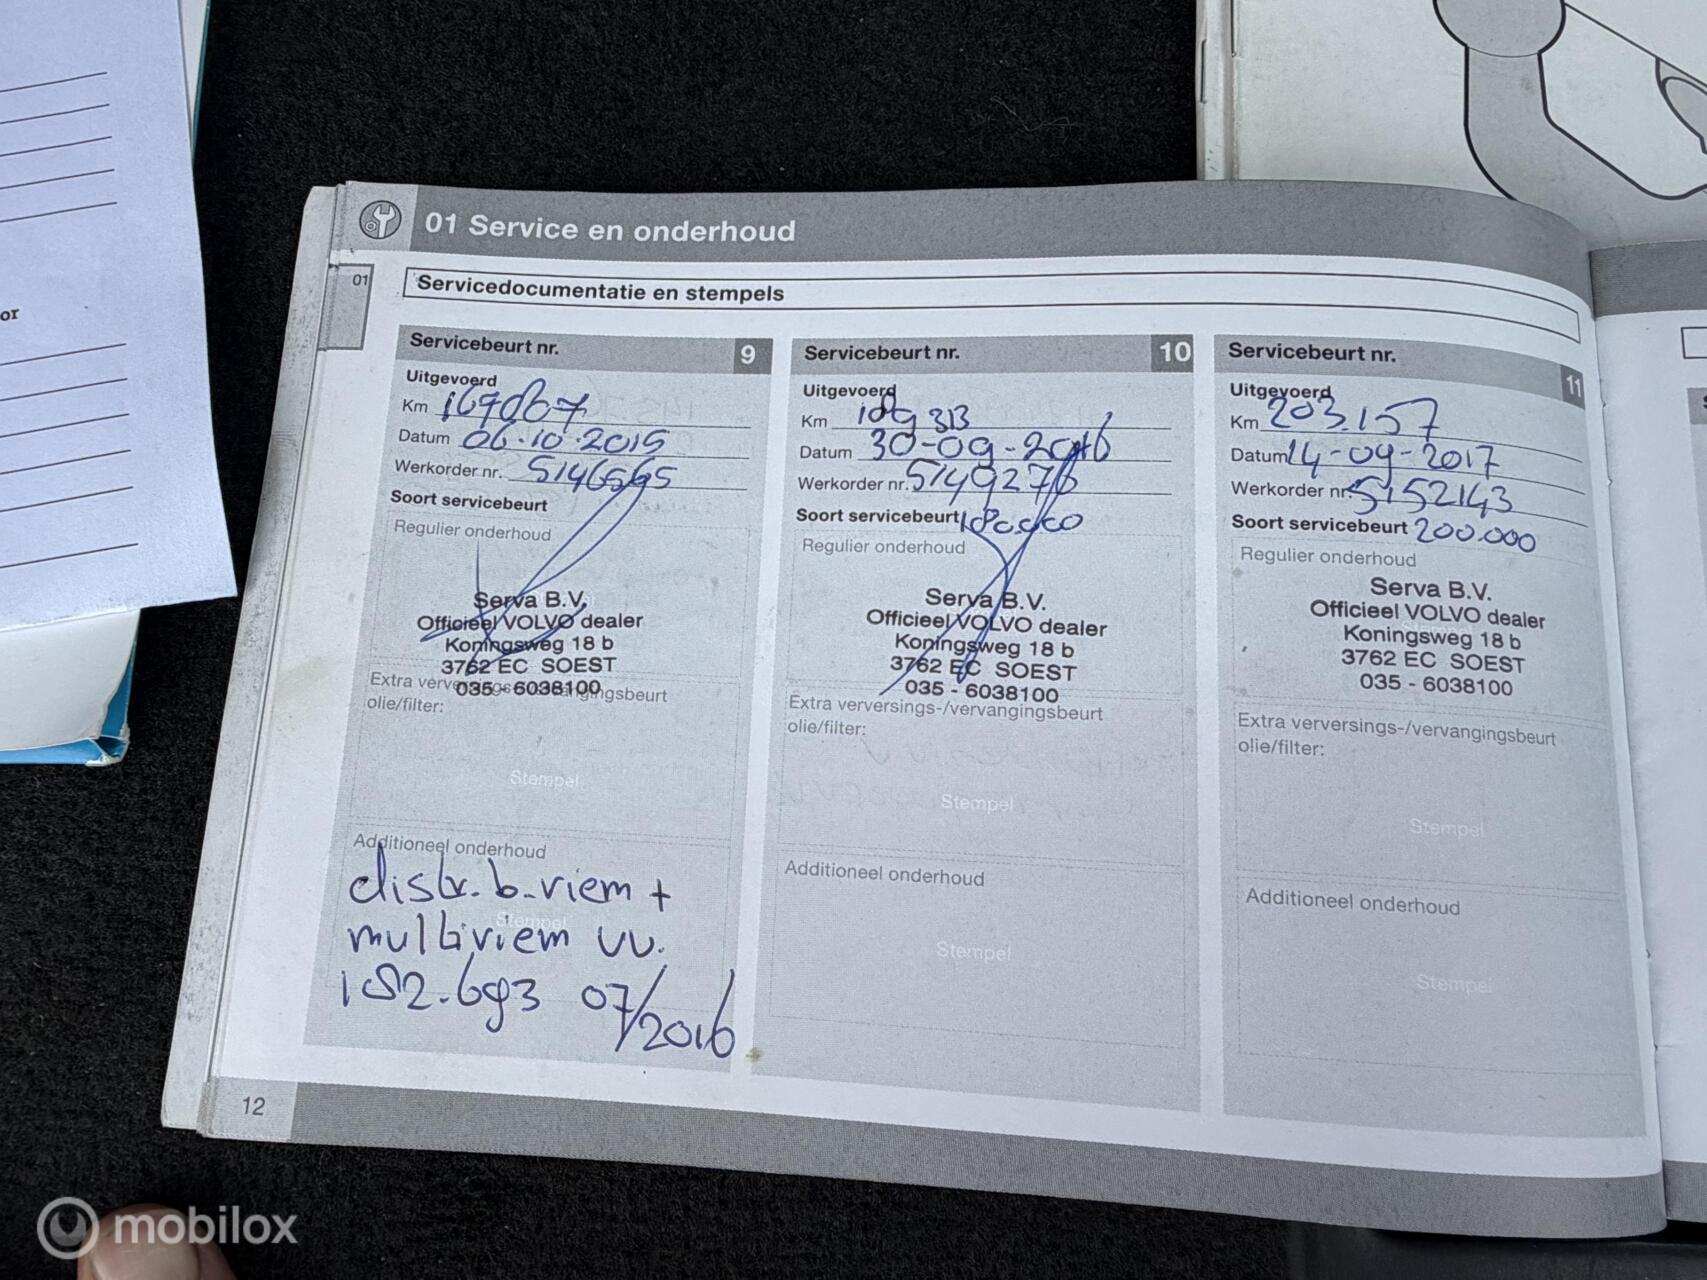 or
01 Service en onderhoud
01
Servicedocumentatie en stempels
Servicebeurt nr. 9
Uitgevoerd
Km 167867
Datum 06-10-2015
Werkorder nr. 5146565
Soort servicebeurt
Regulier onderhoud
Serva B.V.
Officieel VOLVO dealer
Koningsweg 18 b
3762 EC SOEST
035 - 6038100
Extra verversings-/vervangingsbeurt
olie/filter:
Stempel
Additioneel onderhoud
distr. b. riem +
Stempel
multiriem vv.
182.693 07/2016
Servicebeurt nr. 10
Uitgevoerd
Km 189313
Datum 30-09-2016
Werkorder nr. 5149276
Soort servicebeurt 180.000
Regulier onderhoud
Serva B.V.
Officieel VOLVO dealer
Koningsweg 18 b
3762 EC SOEST
035 - 6038100
Extra verversings-/vervangingsbeurt
olie/filter:
Stempel
Additioneel onderhoud
Stempel
Servicebeurt nr. 11
Uitgevoerd
Km 203.157
Datum 14-09-2017
Werkorder nr. 5152143
Soort servicebeurt 200.000
Regulier onderhoud
Serva B.V.
Officieel VOLVO dealer
Koningsweg 18 b
3762 EC SOEST
035 - 6038100
Extra verversings-/vervangingsbeurt
olie/filter:
Stempel
Additioneel onderhoud
Stempel
12
mobilox